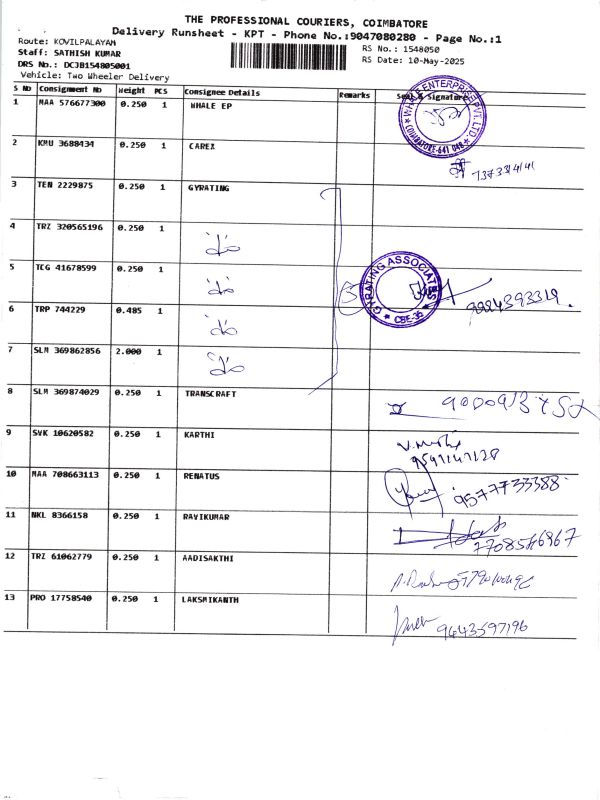 THE PROFESSIONAL COURIERS, COIMBATORE
Delivery Runsheet - KPT - Phone No.:9047080280 - Page No.:1
Route: KOVILPALAYAM
Staff: SATHISH KUMAR
DRS No.: DCJB154805001
Vehicle: Two Wheeler Delivery
RS No.: 1548050
RS Date: 10-May-2025
S No Consignment No Weight PCS Consignee Details Remarks Seal & Signature
1 MAA 576677300 0.250 1 WHALE EP
WHALE ENTERPRISE PVT. LTD. COIMBATORE-641 048
2 KMU 3688434 0.250 1 CAREX
3 TEN 2229875 0.250 1 GYRATING
4 TRZ 320565196 0.250 1 do
5 TCG 41678599 0.250 1 do
GYRATING ASSOCIATES CBE-35
6 TRP 744229 0.485 1 do
7 SLM 369862856 2.000 1 do
8 SLM 369874029 0.250 1 TRANSCRAFT
9 SVK 10620582 0.250 1 KARTHI
10 MAA 708663113 0.250 1 RENATUS 9577733388
11 NKL 8366158 0.250 1 RAVIKUMAR
12 TRZ 61062779 0.250 1 AADISAKTHI
13 PRO 17758540 0.250 1 LAKSMIKANTH 9643597196